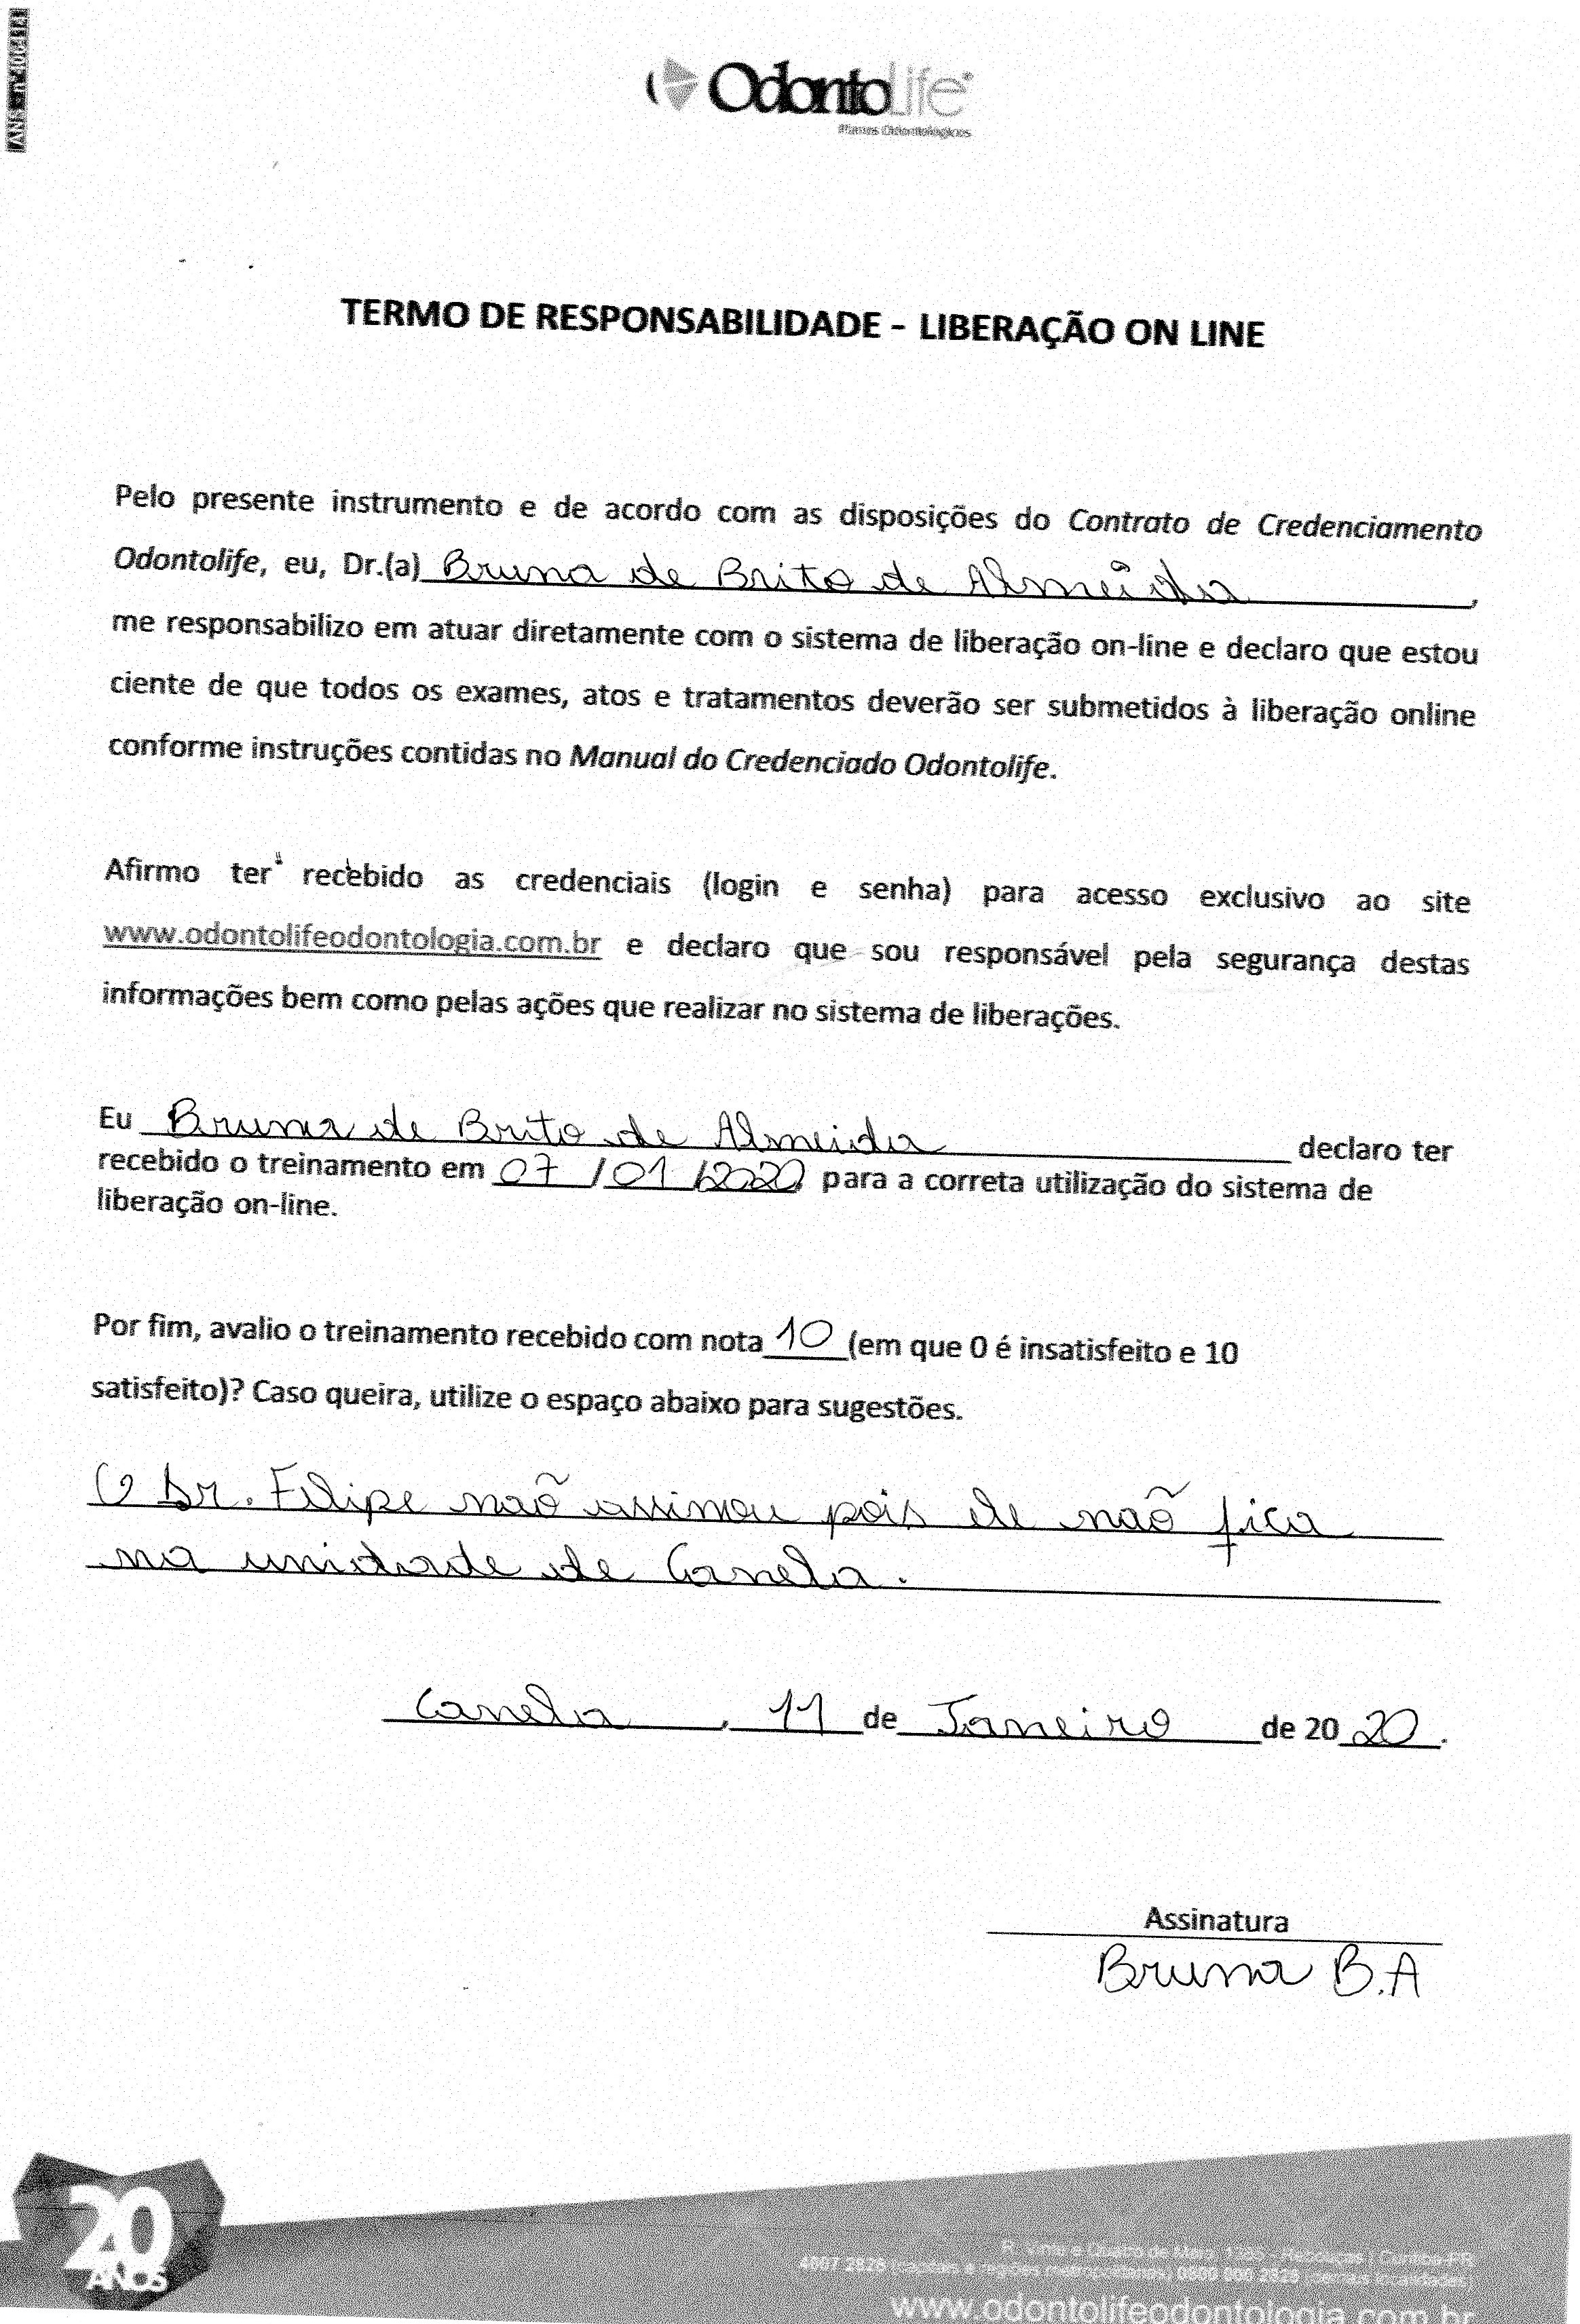 ANS - nº 406414
OdontoLife®
Planos Odontológicos
TERMO DE RESPONSABILIDADE - LIBERAÇÃO ON LINE
Pelo presente instrumento e de acordo com as disposições do Contrato de Credenciamento
Odontolife, eu, Dr.(a) Bruna de Brito de Almeida ,
me responsabilizo em atuar diretamente com o sistema de liberação on-line e declaro que estou
ciente de que todos os exames, atos e tratamentos deverão ser submetidos à liberação online
conforme instruções contidas no Manual do Credenciado Odontolife.
Afirmo ter recebido as credenciais (login e senha) para acesso exclusivo ao site
www.odontolifeodontologia.com.br e declaro que sou responsável pela segurança destas
informações bem como pelas ações que realizar no sistema de liberações.
Eu Bruna de Brito de Almeida declaro ter
recebido o treinamento em 07 / 01 / 2020 para a correta utilização do sistema de
liberação on-line.
Por fim, avalio o treinamento recebido com nota 10 (em que 0 é insatisfeito e 10
satisfeito)? Caso queira, utilize o espaço abaixo para sugestões.
O Dr. Filipe não assinou pois ele não fica
na unidade de Canela.
Canela , 11 de Janeiro de 20 20 .
Assinatura
Bruna B.A
20
ANOS
R. Vinte e Quatro de Maio, - Rebouças | Curitiba-PR
4007 2828 (capitais e regiões metropolitanas) 0800 000 2828 (demais localidades)
www.odontolifeodontologia.com.br